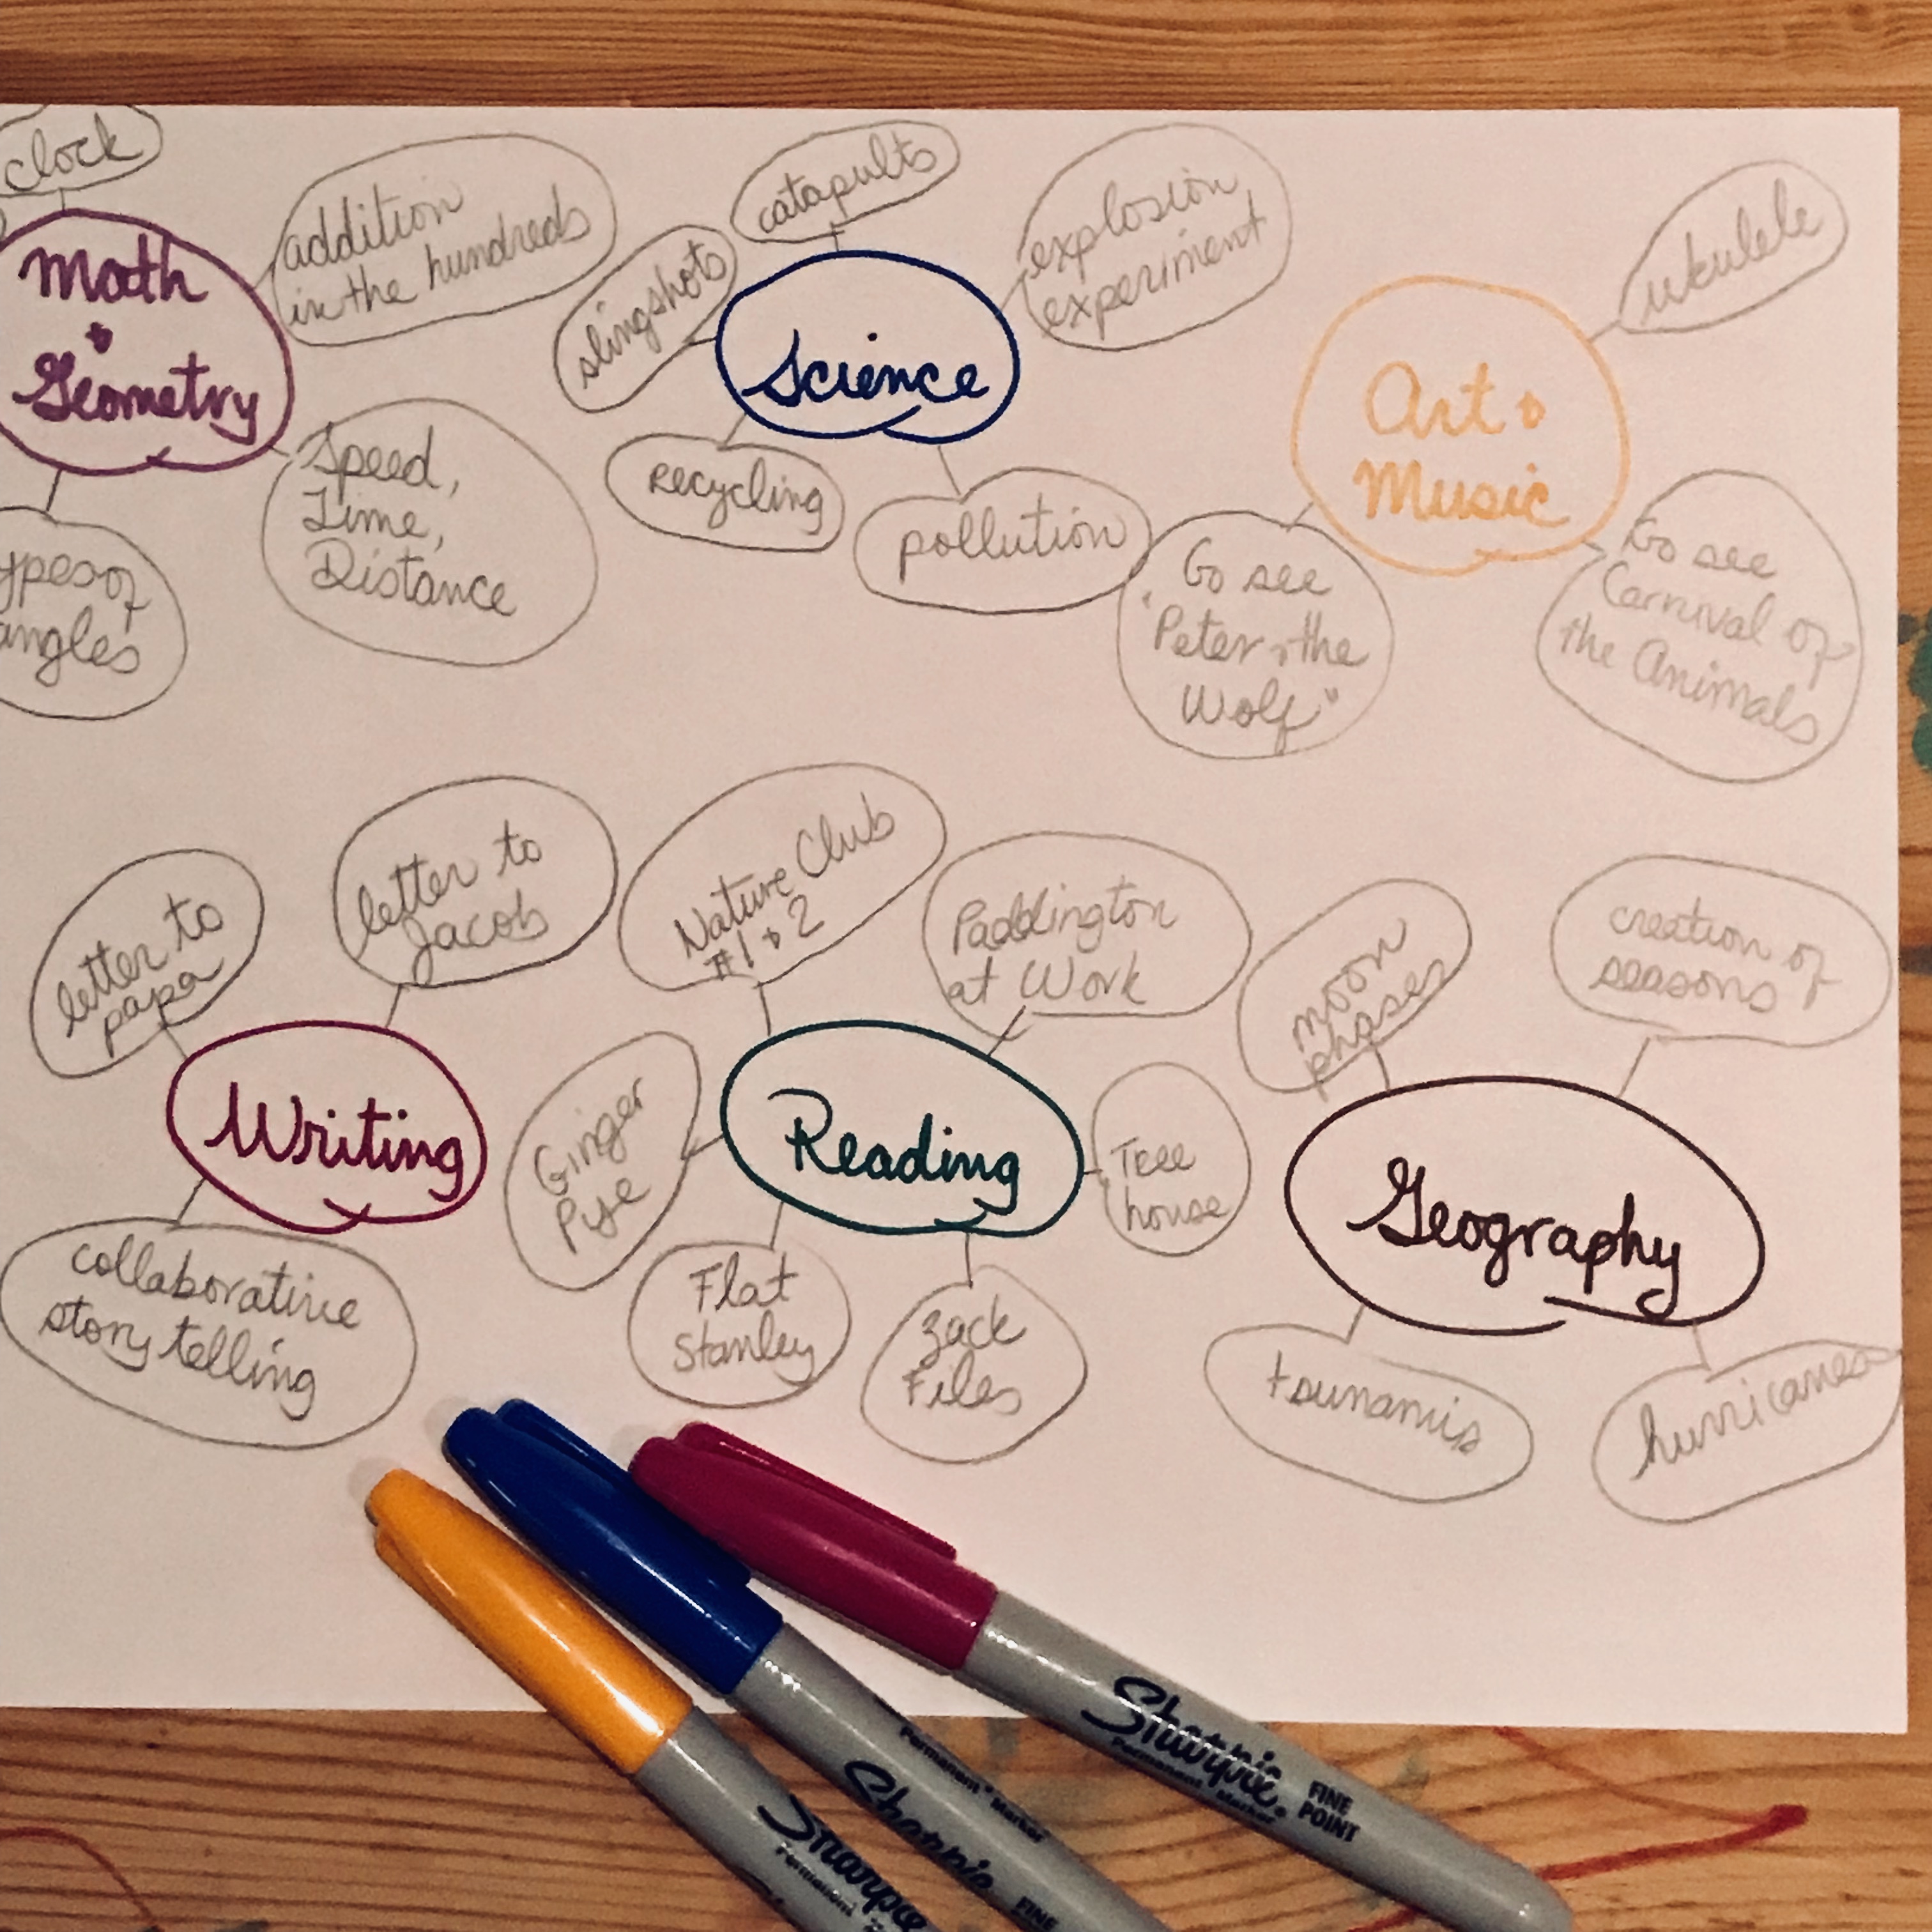 clock
addition
in the hundreds
Math
+
Geometry
Speed,
Time,
Distance
ypes of
angles
catapults
slingshots
explosion
experiment
Science
Recycling
pollution
ukulele
Art +
Music
Go see
"Peter + the
Wolf"
Go see
Carnival of
the Animals
letter to
papa
letter to
Jacob
Writing
collaborative
story telling
Nature Club
#1 + 2
Paddington
at Work
Ginger
Pye
Reading
Tree
house
Flat
Stanley
Zack
Files
moon
phases
creation of
seasons
Geography
tsunamis
hurricanes
Sharpie
Permanent
Sharpie
Permanent Marker
FINE
Sharpie.
Permanent Marker
FINE
POINT